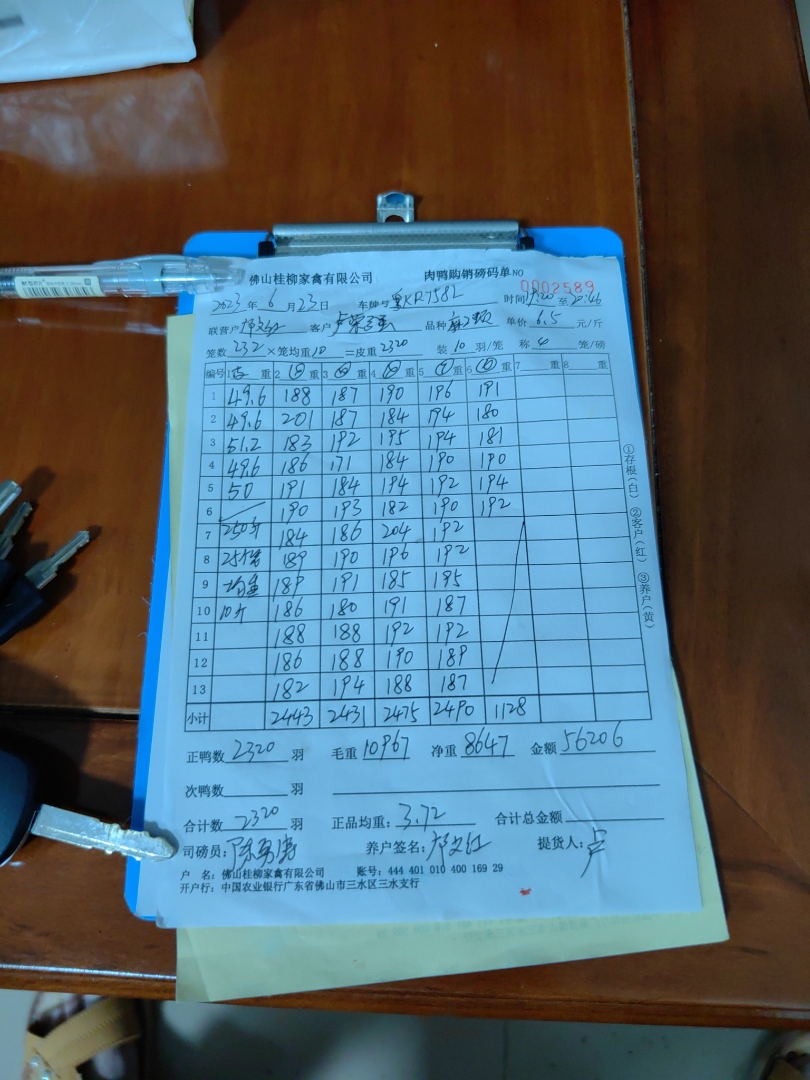 佛山桂柳家禽有限公司 肉鸭购销磅码单 NO 0002589
2023年6月23日 车牌号 粤KR7581 时间 至
联营户 客户 卢荣 品种 单价 6.5 元/斤
笼数 232 ×笼均重 10 =皮重 2320 装 10 羽/笼 称 4 笼/磅
编号 1 重 2 重 3 重 4 重 5 重 6 重 7 重 8 重
1 49.6 188 187 190 196 191
2 49.6 201 187 184 194 180
3 51.2 183 192 195 194 181
4 49.6 186 171 184 190 190
5 50 191 184 194 192 194
6 190 193 182 190 192
7 250斤 184 186 204 192
8 25笼 189 190 196 192
9 均重 189 191 185 195
10 10斤 186 180 191 187
11 188 188 192 192
12 186 188 190 189
13 182 194 188 187
小计 2443 2431 2475 2490 1128
正鸭数 2320 羽 毛重 10967 净重 8647 金额 56206
次鸭数 羽
合计数 2320 羽 正品均重: 3.72 合计总金额
司磅员: 陈勇涛 养户签名: 提货人: 卢
户 名: 佛山桂柳家禽有限公司 账号: 444 401 010 400 169 29
开户行: 中国农业银行广东省佛山市三水区三水支行
①存根(白) ②客户(红) ③养户(黄)